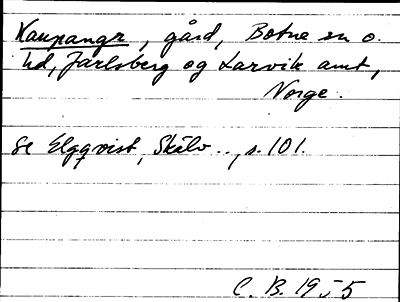 Kaupangr, gård, Botne sn o.
hd, Jarlsberg og Larvik amt,
Norge.
Se Elgqvist, Skälv.., s. 101.
C. B. 19 5